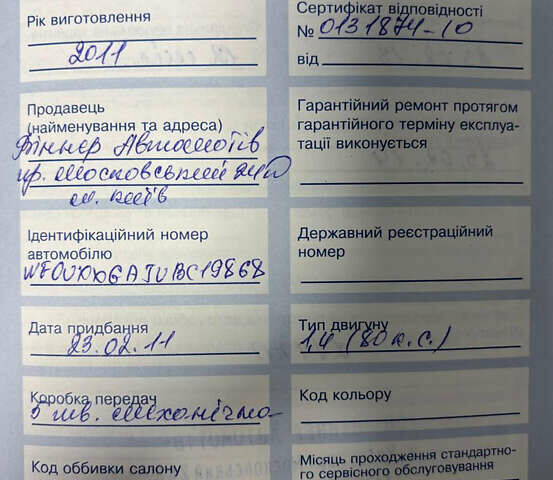 Рік виготовлення
2011
Сертифікат відповідності
№ 0131874-10
від
Продавець
(найменування та адреса)
Віннер Автомотів
пр. Московський
м. Київ
Гарантійний ремонт протягом
гарантійного терміну експлуа-
тації виконується
Ідентифікаційний номер
автомобілю
WF0UXXGAJUBC19868
Державний реєстраційний
номер
Дата придбання
23.02.11
Тип двигуну
1,4 (80 к.с.)
Коробка передач
5 шв. механічна
Код кольору
Код оббивки салону
Місяць проходження стандартно-
го сервісного обслуговування